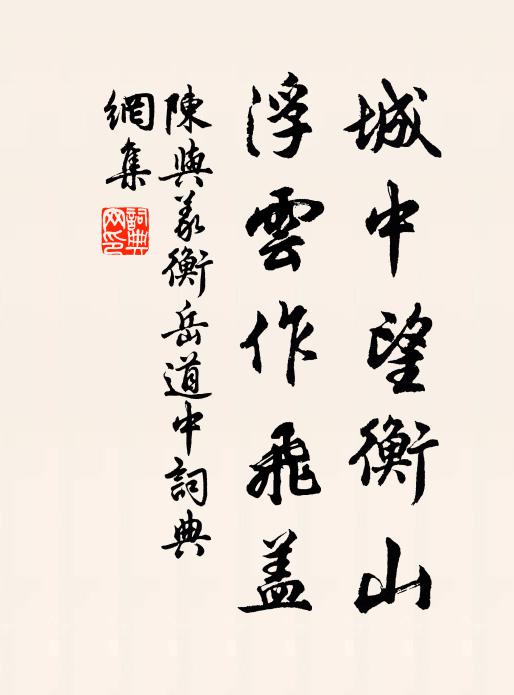 城中望衡山
浮雲作飛蓋
陳與義衡岳道中詞典
網集
詞典網印